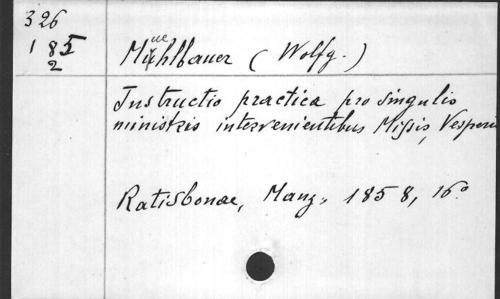 326
185
2
Muehlbauer (Wolfg.)
Instructio practica pro singulis
ministris intervenientibus Missis, Vesperis
Ratisbonae, Manz, 1858, 16º